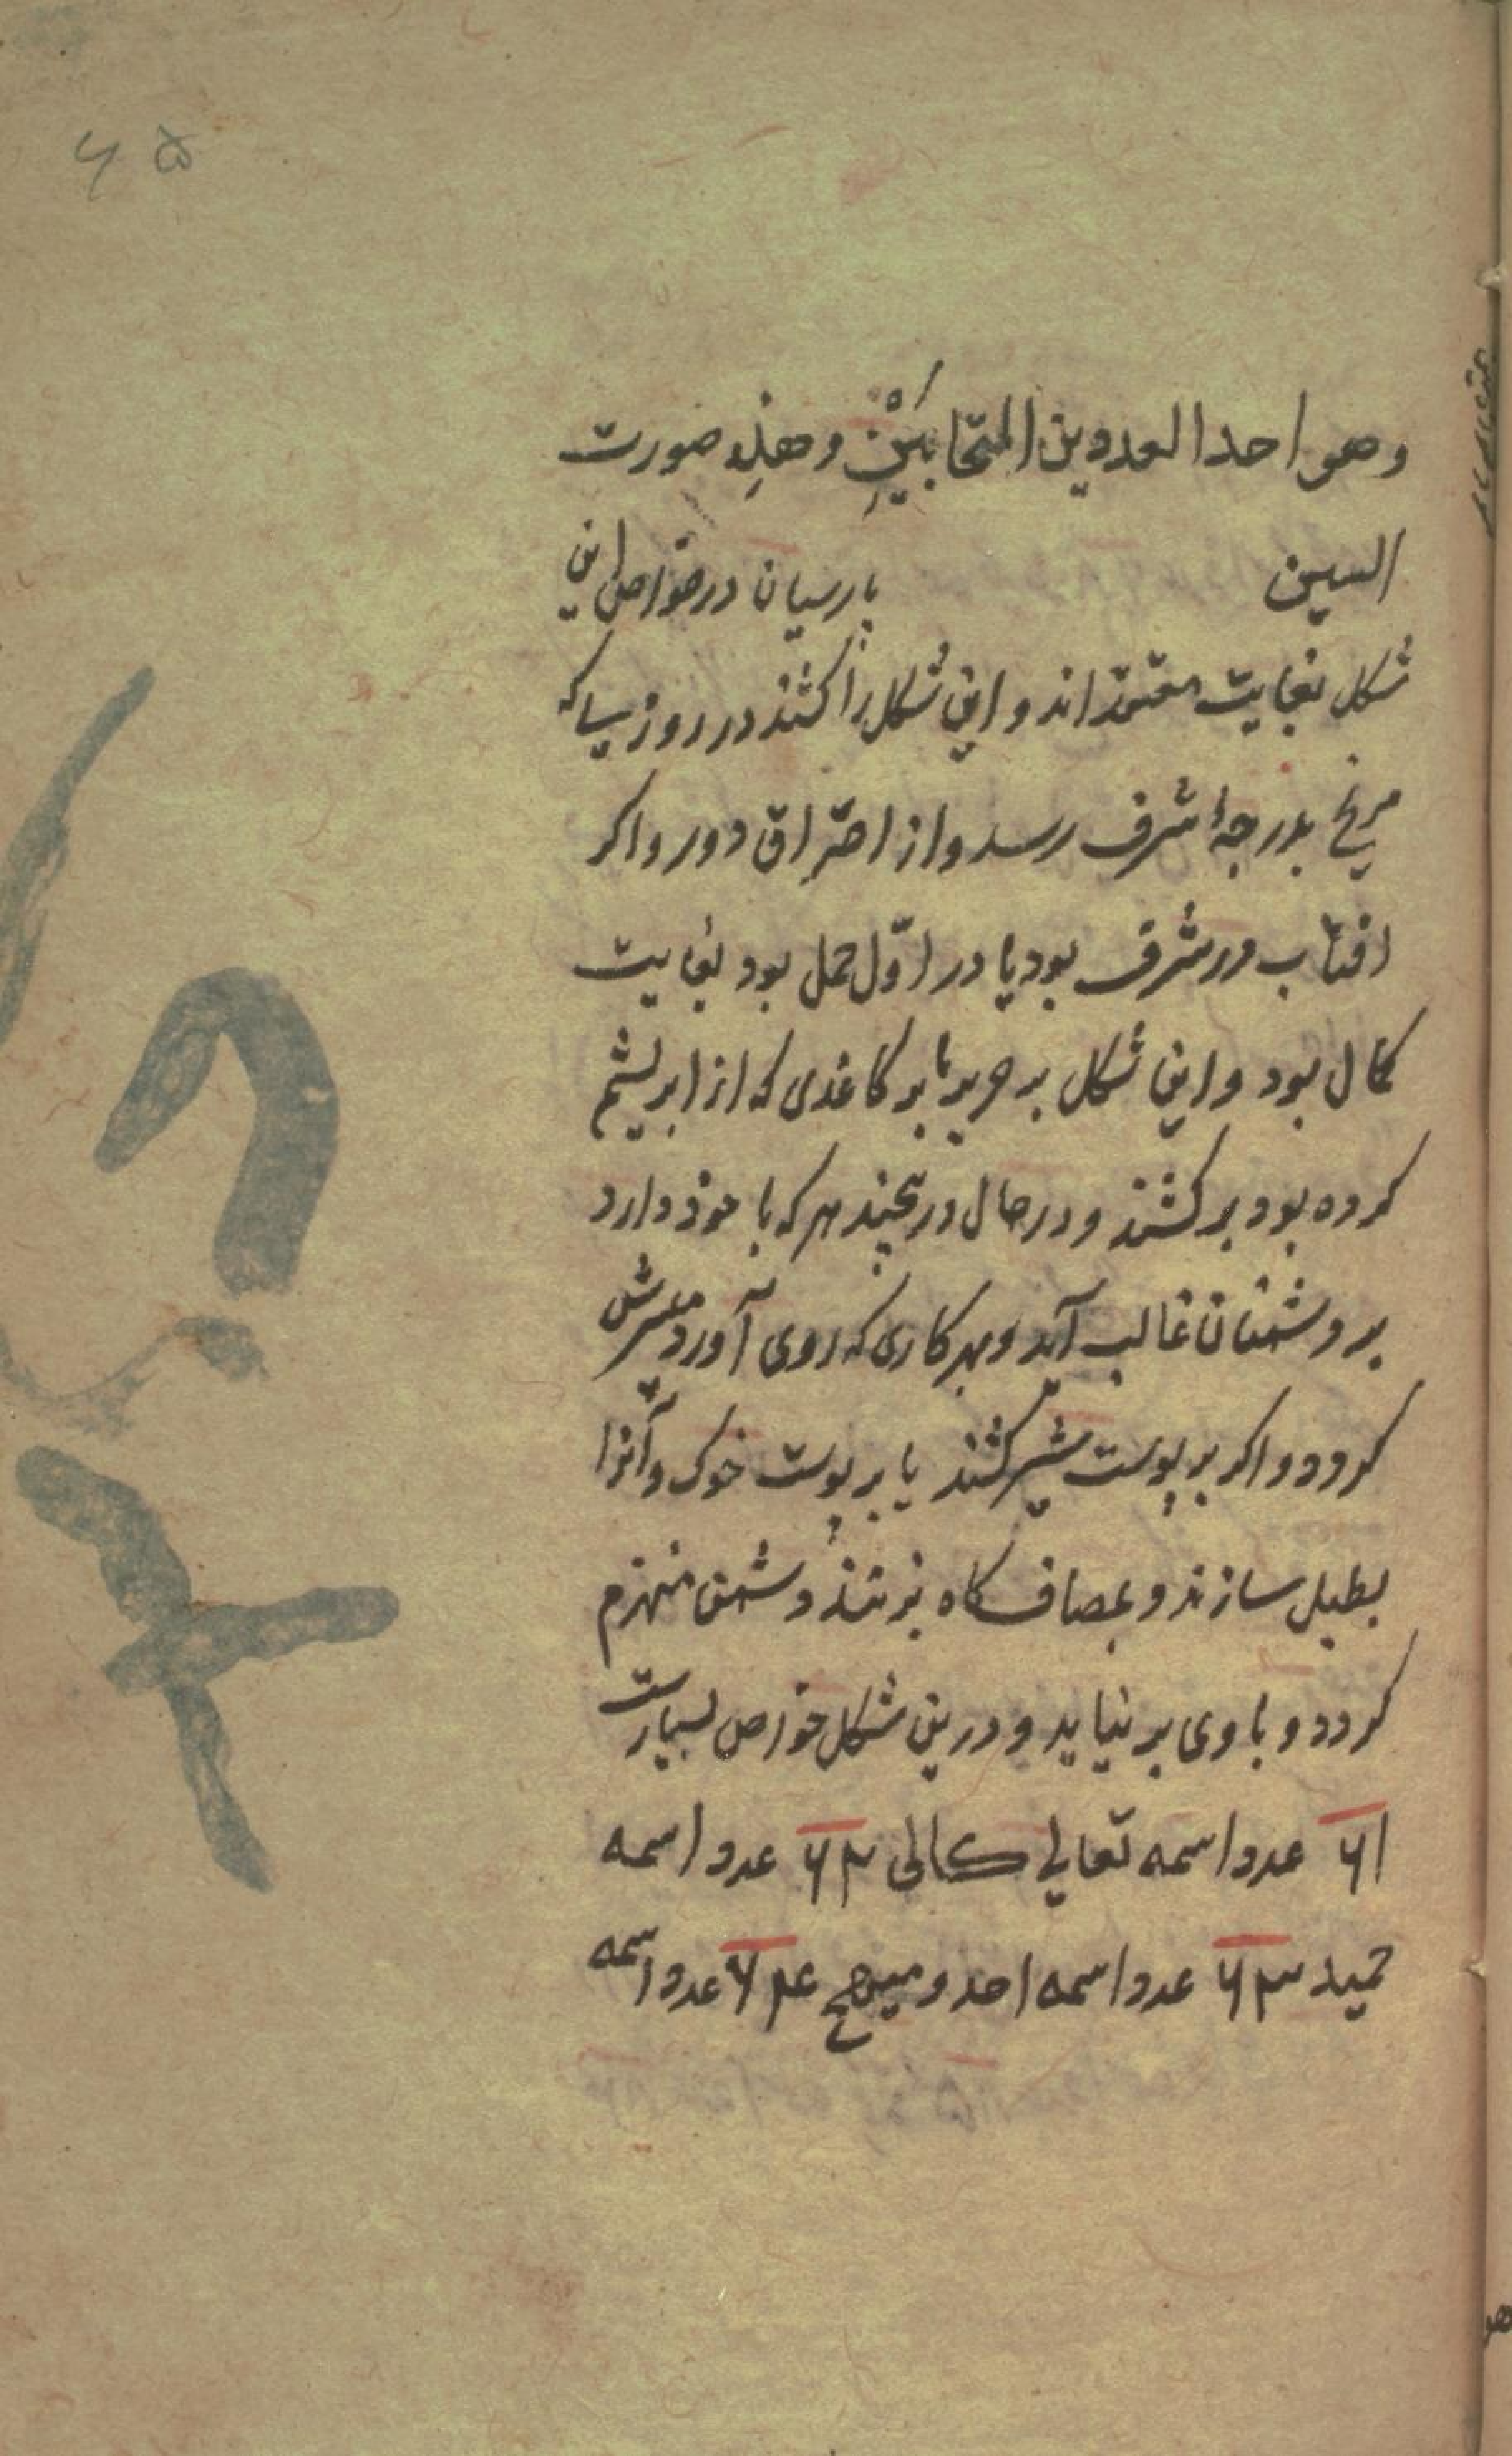 ۶۵
وهو احد العددین المتحابَیْنِ وهذِه صورت
السین پارسیان در خواص این
شکل بغایت معتمد اند و این شکل را کشند در روز سیاکه
مریخ بدرجهٔ شرف رسد و از احتراق دور و اکر
افتاب در شرف بود یا در اوّل حمل بود بغایت
کمال بود و این شکل بر حریر یا بر کاغذی که از ابریشم
کرده بود برکشند و در حال در پیچند هر که با خود دارد
بر دشمنان غالب آید و بهر کاری که روی آورد میسرش
کردد و اکر بر پوست شیر کشند یا بر پوست خوک و آنرا
بطبل سازند و بمصاف کاه بزنند دشمن منهزم
کردد و با وی بر نیاید و درین شکل خواص بسیارست
۶۱ عدد اسمه تعالی کالی ۶۲ عدد اسمه
حمید ۶۳ عدد اسمه احد و مبهج ۶۴ عدد اسمه